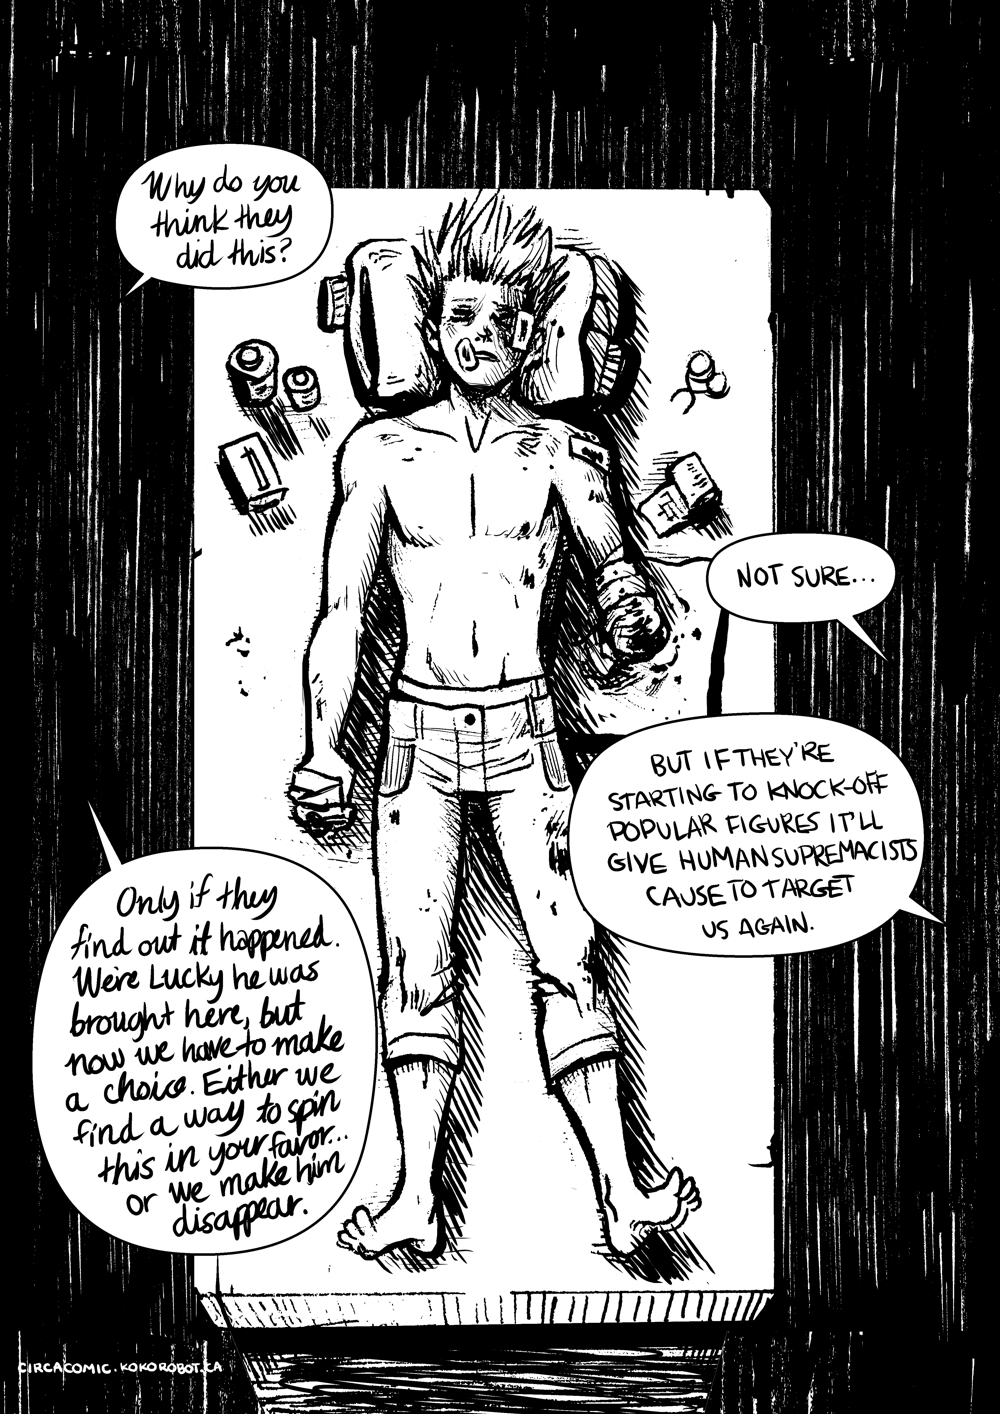 Why do you
think they
did this?
NOT SURE...
BUT IF THEY'RE
STARTING TO KNOCK-OFF
POPULAR FIGURES IT'LL
GIVE HUMAN SUPREMACISTS
CAUSE TO TARGET
US AGAIN.
Only if they
find out it happened.
We're Lucky he was
brought here, but
now we have to make
a choice. Either we
find a way to spin
this in your favor...
or we make him
disappear.
CIRCACOMIC.KOKOROBOT.CA